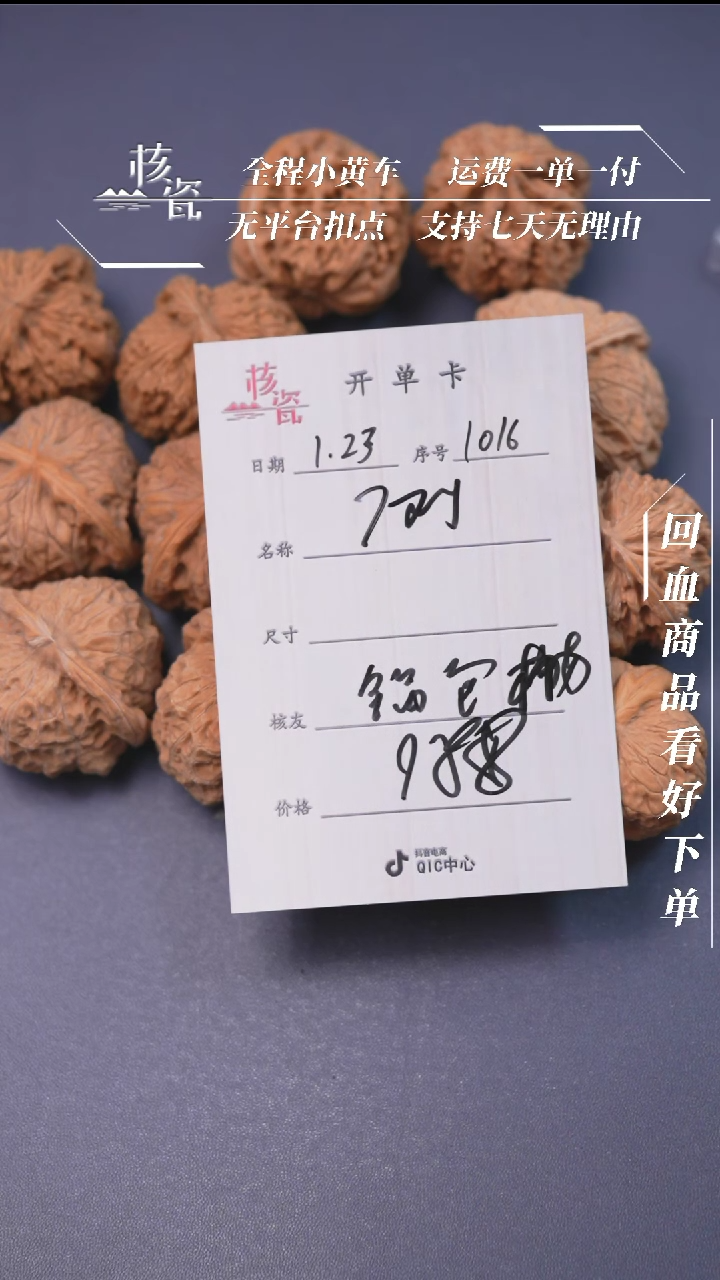 核瓷
全程小黄车 运费一单一付
无平台扣点 支持七天无理由
核瓷
开单卡
日期 1.23 序号 1016
名称
尺寸
核友
价格
抖音电商
QIC中心
回血商品看好下单